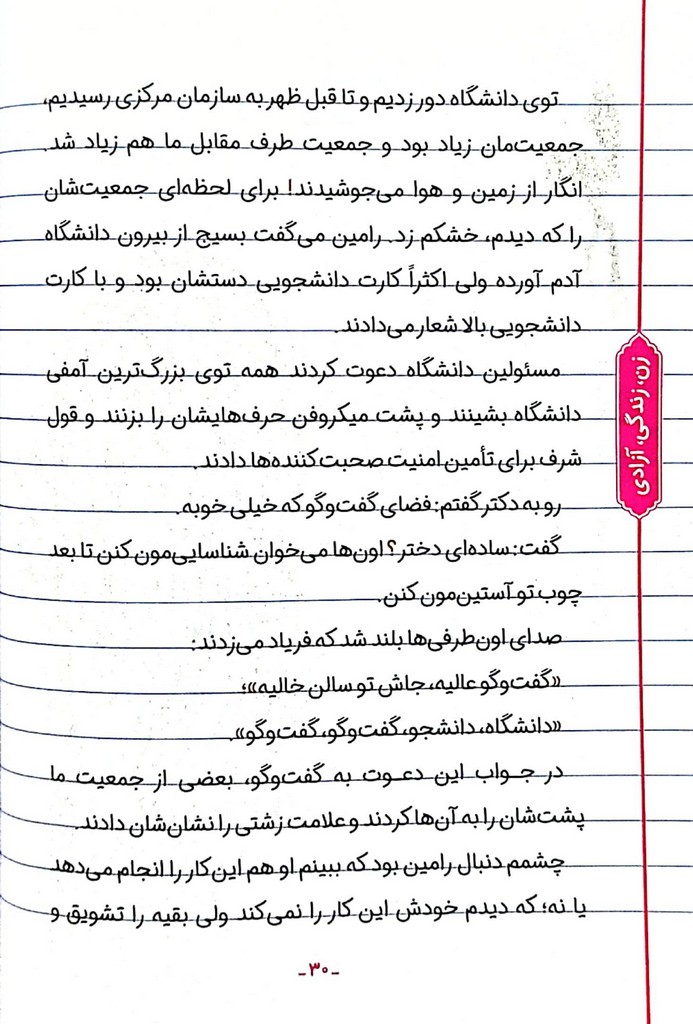 توی دانشگاه دور زدیم و تا قبل ظهر به سازمان مرکزی رسیدیم،
جمعیت‌مان زیاد بود و جمعیت طرف مقابل ما هم زیاد شد.
انگار از زمین و هوا می‌جوشیدند! برای لحظه‌ای جمعیت‌شان
را که دیدم، خشکم زد. رامین می‌گفت بسیج از بیرون دانشگاه
آدم آورده ولی اکثراً کارت دانشجویی دستشان بود و با کارت
دانشجویی بالا شعار می‌دادند.
مسئولین دانشگاه دعوت کردند همه توی بزرگ‌ترین آمفی
دانشگاه بشینند و پشت میکروفن حرف‌هایشان را بزنند و قول
شرف برای تأمین امنیت صحبت‌کننده‌ها دادند.
رو به دکتر گفتم: فضای گفت‌وگو که خیلی خوبه.
گفت: ساده‌ای دختر؟ اون‌ها می‌خوان شناسایی‌مون کنن تا بعد
چوب تو آستین‌مون کنن.
صدای اون‌طرفی‌ها بلند شد که فریاد می‌زدند:
«گفت‌وگو عالیه، جاش تو سالن خالیه»؛
«دانشگاه، دانشجو، گفت‌وگو، گفت‌وگو».
در جواب این دعوت به گفت‌وگو، بعضی از جمعیت ما
پشت‌شان را به آن‌ها کردند و علامت زشتی را نشان‌شان دادند.
چشمم دنبال رامین بود که ببینم او هم این کار را انجام می‌دهد
یا نه؛ که دیدم خودش این کار را نمی‌کند ولی بقیه را تشویق و
زن، زندگی، آزادی
-۳۰-